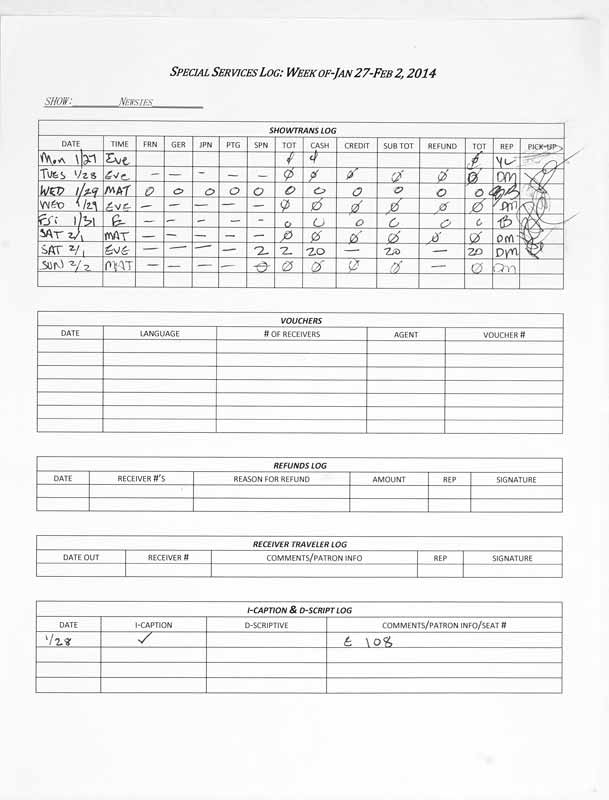 SPECIAL SERVICES LOG: WEEK OF-JAN 27-FEB 2, 2014
SHOW: NEWSIES
SHOWTRANS LOG
DATE TIME FRN GER JPN PTG SPN TOT CASH CREDIT SUB TOT REFUND TOT REP PICK-UP
Mon 1/27 Eve ϕ ϕ ϕ YL
TUES 1/28 Eve – – – – – Ø Ø Ø Ø Ø DM
WED 1/29 MAT 0 0 0 0 0 0 0 0 0 0 0
WED 1/29 EVE – – – – – Ø Ø Ø Ø Ø Ø DM
Fri 1/31 E – – – – – 0 0 0 0 0 0 B
SAT 2/1 MAT – – – – – Ø Ø Ø Ø Ø Ø DM
SAT 2/1 EVE – – – – 2 2 20 – 20 – 20 DM
SUN 2/2 MAT – – – – Ø Ø Ø Ø Ø – Ø DM
VOUCHERS
DATE LANGUAGE # OF RECEIVERS AGENT VOUCHER #
REFUNDS LOG
DATE RECEIVER #'S REASON FOR REFUND AMOUNT REP SIGNATURE
RECEIVER TRAVELER LOG
DATE OUT RECEIVER # COMMENTS/PATRON INFO REP SIGNATURE
I-CAPTION & D-SCRIPT LOG
DATE I-CAPTION D-SCRIPTIVE COMMENTS/PATRON INFO/SEAT #
1/28 ✓ E 108